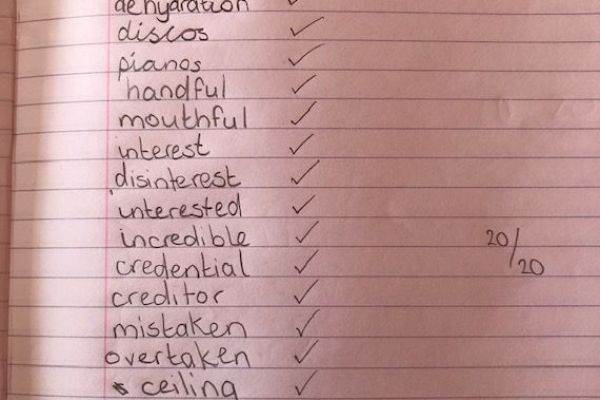 dehydration ✓
discos ✓
pianos ✓
handful ✓
mouthful ✓
interest ✓
disinterest ✓
interested ✓
incredible ✓
20/20
credential ✓
creditor ✓
mistaken ✓
overtaken ✓
ceiling ✓